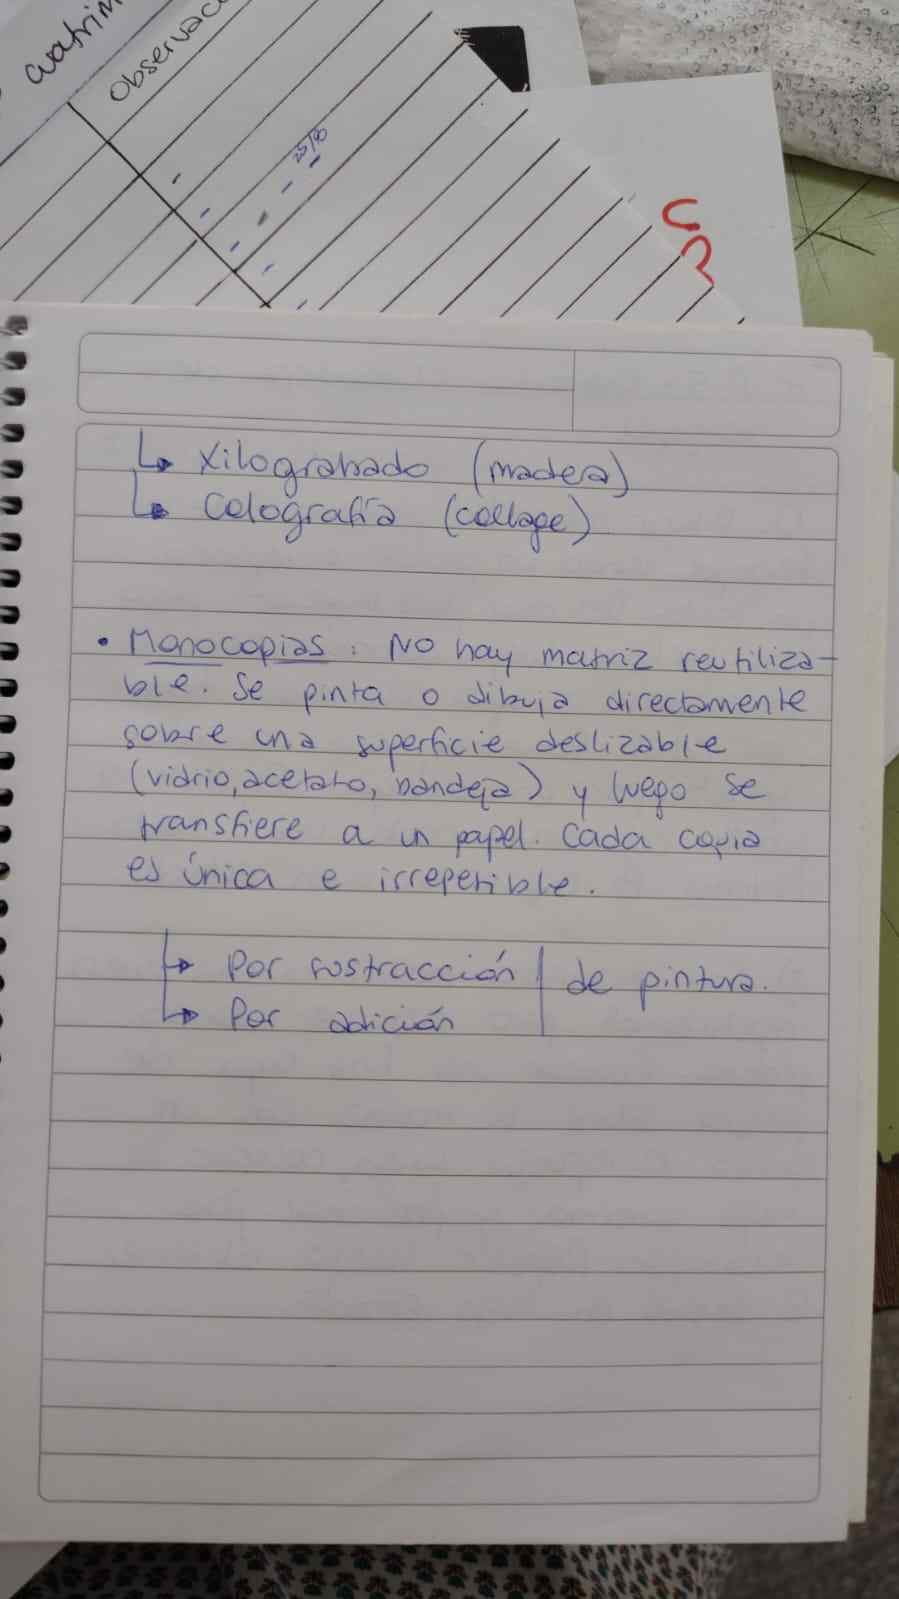 Observac
25/8
↳ Xilograbado (madera)
↳ Colografía (collage)
• Monocopias: No hay matriz reutiliza-
ble. Se pinta o dibuja directamente
sobre una superficie deslizable
(vidrio, acetato, bandeja) y luego se
transfiere a un papel. Cada copia
es única e irrepetible.
↳ Por sustracción | de pintura.
↳ Por adición